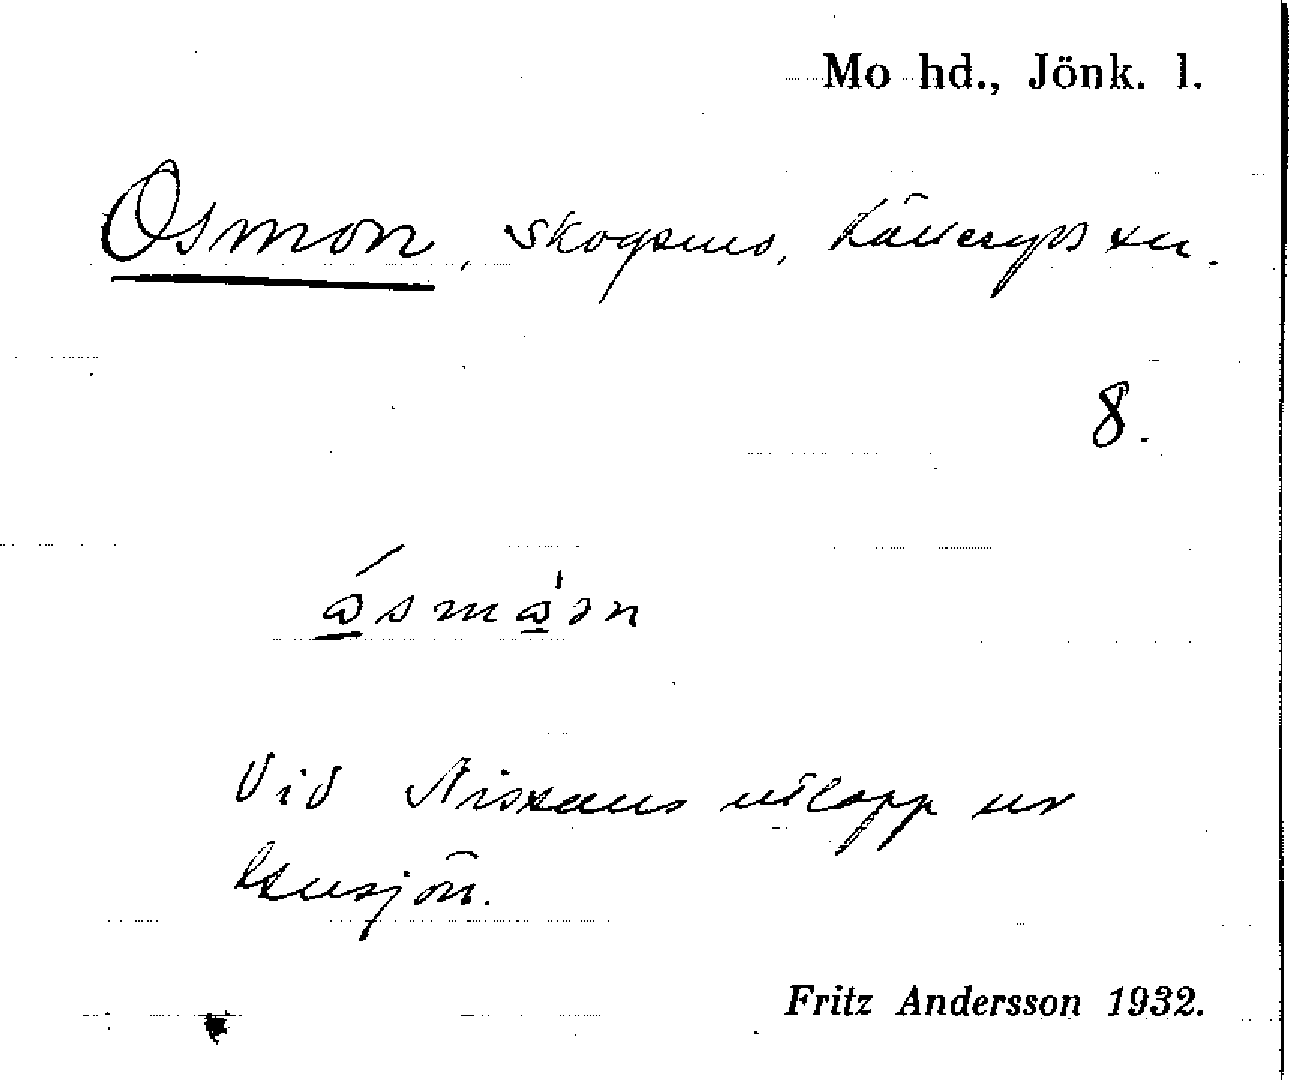 Mo hd., Jönk. l.
Osmon, skogsms, Källeryds sn.
8.
åsmån
Vid Nissans utlopp ur
sjön.
Fritz Andersson 1932.